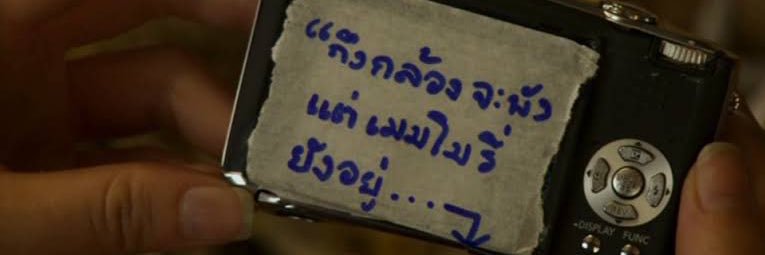 “ถึงกล้องจะพัง
แต่ เมมโมรี่
ยังอยู่....
DISPLAY FUNC